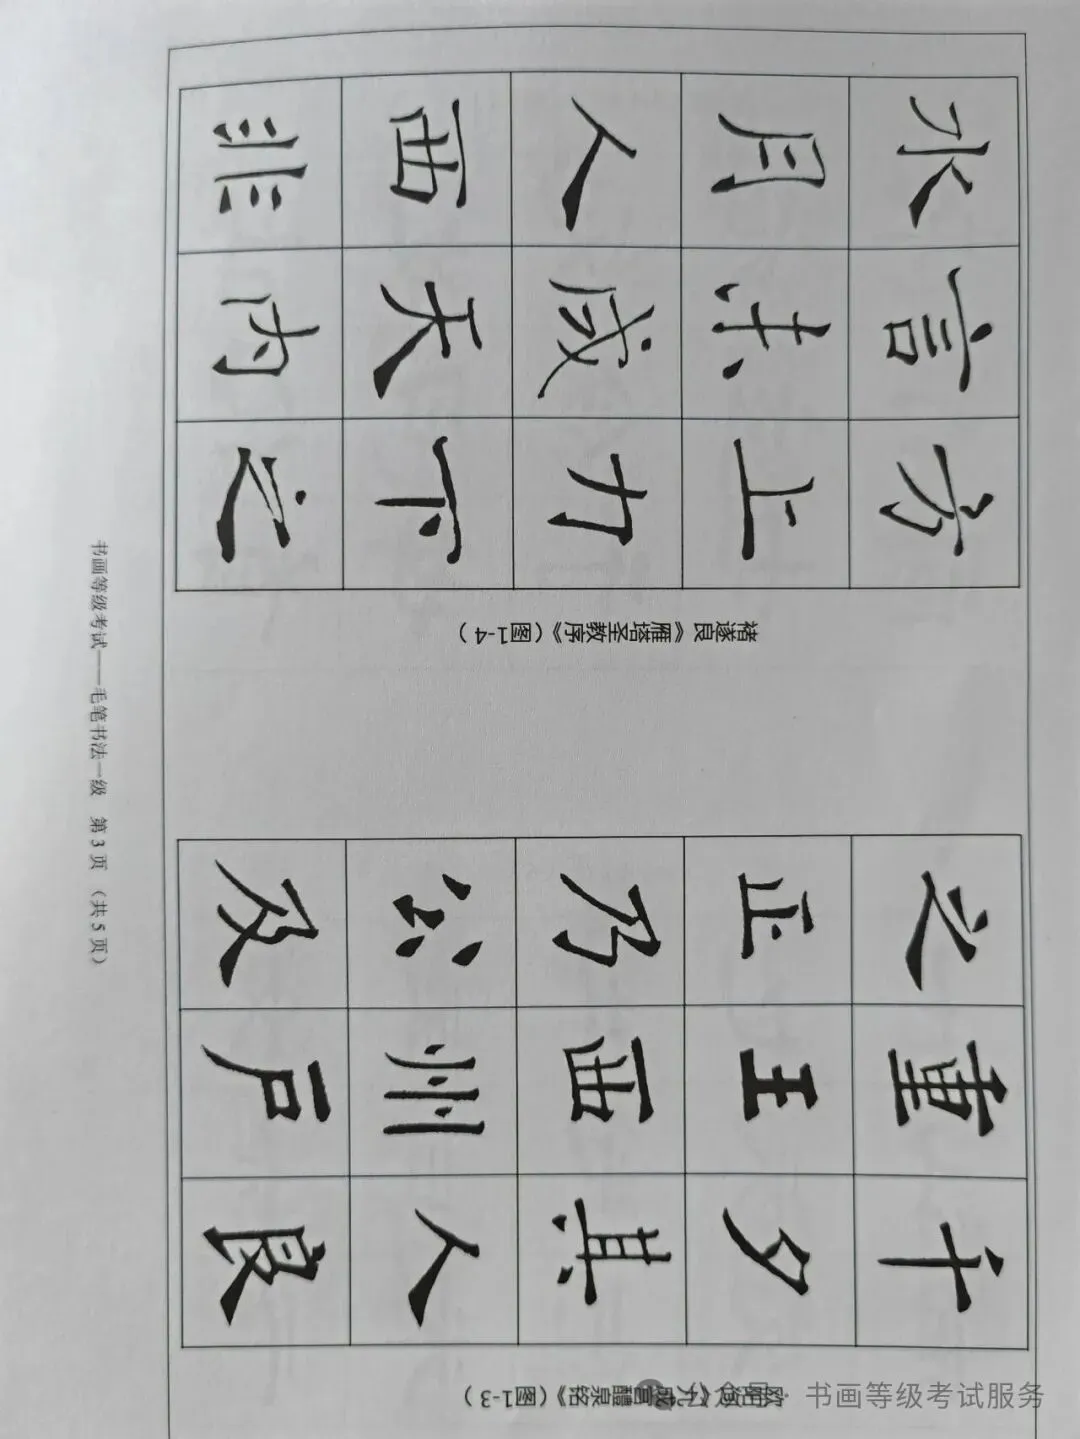 水 言 方
月 未 上
人 咸 力
西 天 下
非 内 之
褚遂良《雁塔圣教序》（图1-4）
之 重 千
正 王 夕
乃 西 其
公 州 人
及 户 良
欧阳询《九成宫醴泉铭》（图1-3）
书画等级考试——毛笔书法一级 第3页 （共5页）
公众号 · 书画等级考试服务